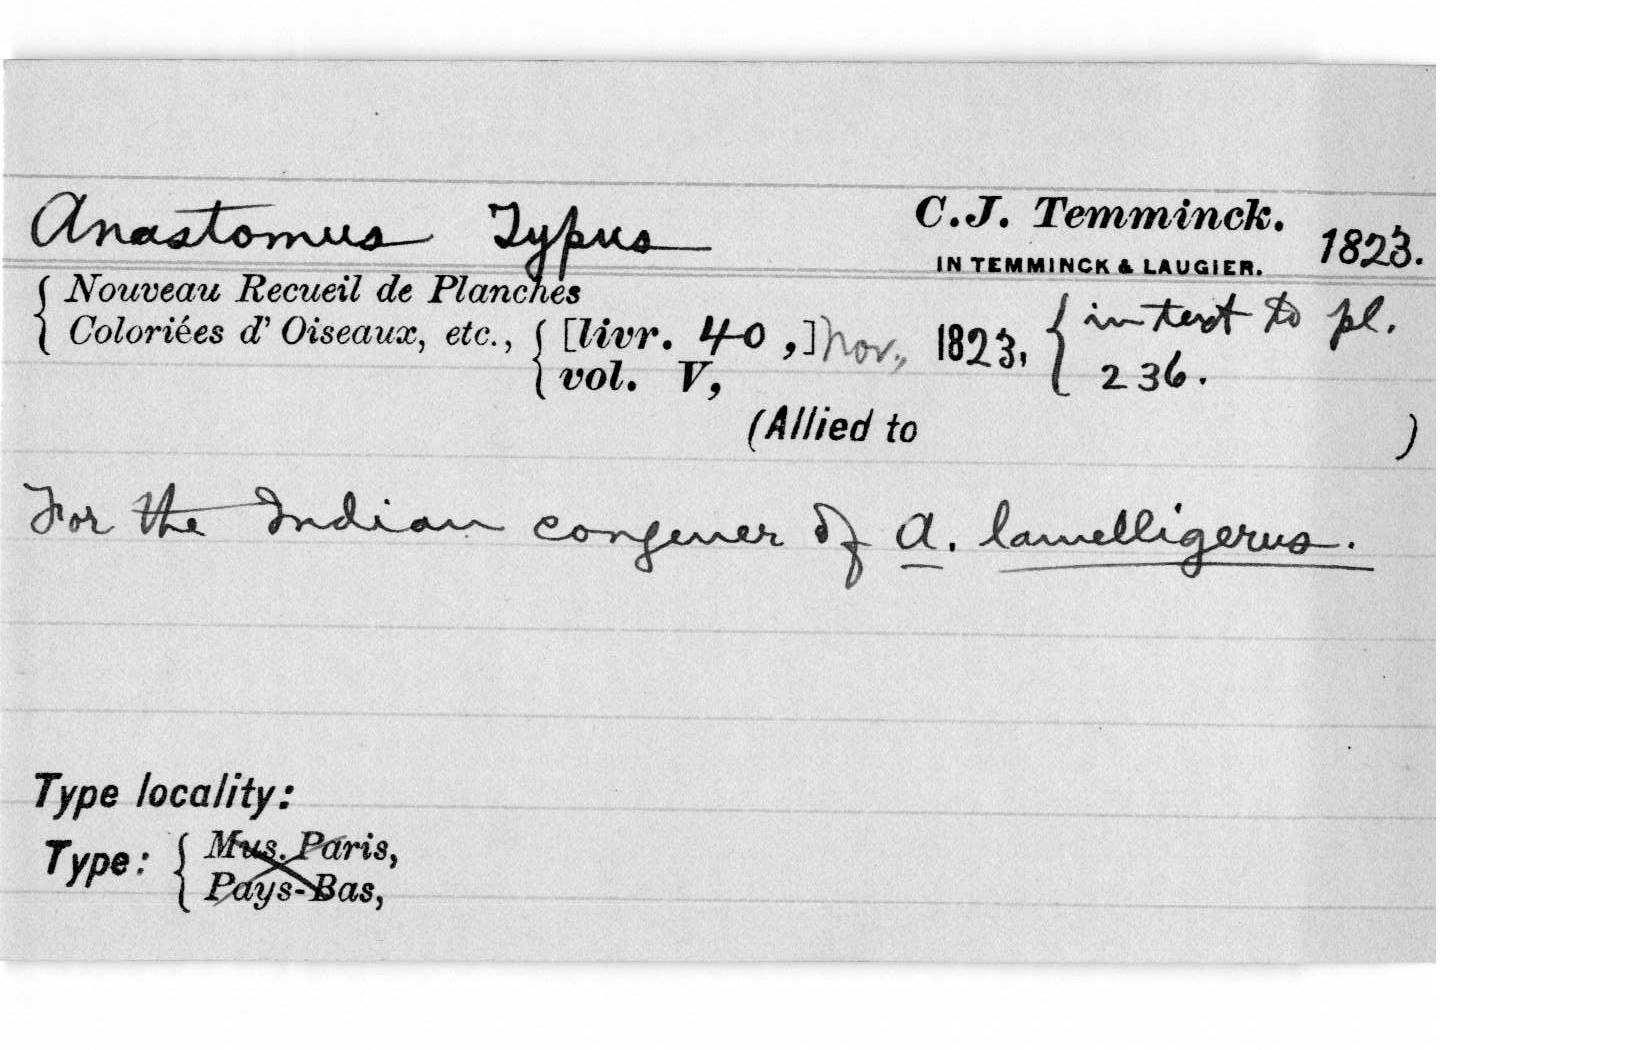 Anastomus Typus C.J. Temminck. 1823.
IN TEMMINCK & LAUGIER.
Nouveau Recueil de Planches
Coloriées d' Oiseaux, etc., [livr. 40 ,] Nov., 1823, in text to pl.
vol. V, 236.
(Allied to )
For the Indian congener of A. lamelligerus.
Type locality:
Type: Mus. Paris,
Pays-Bas,